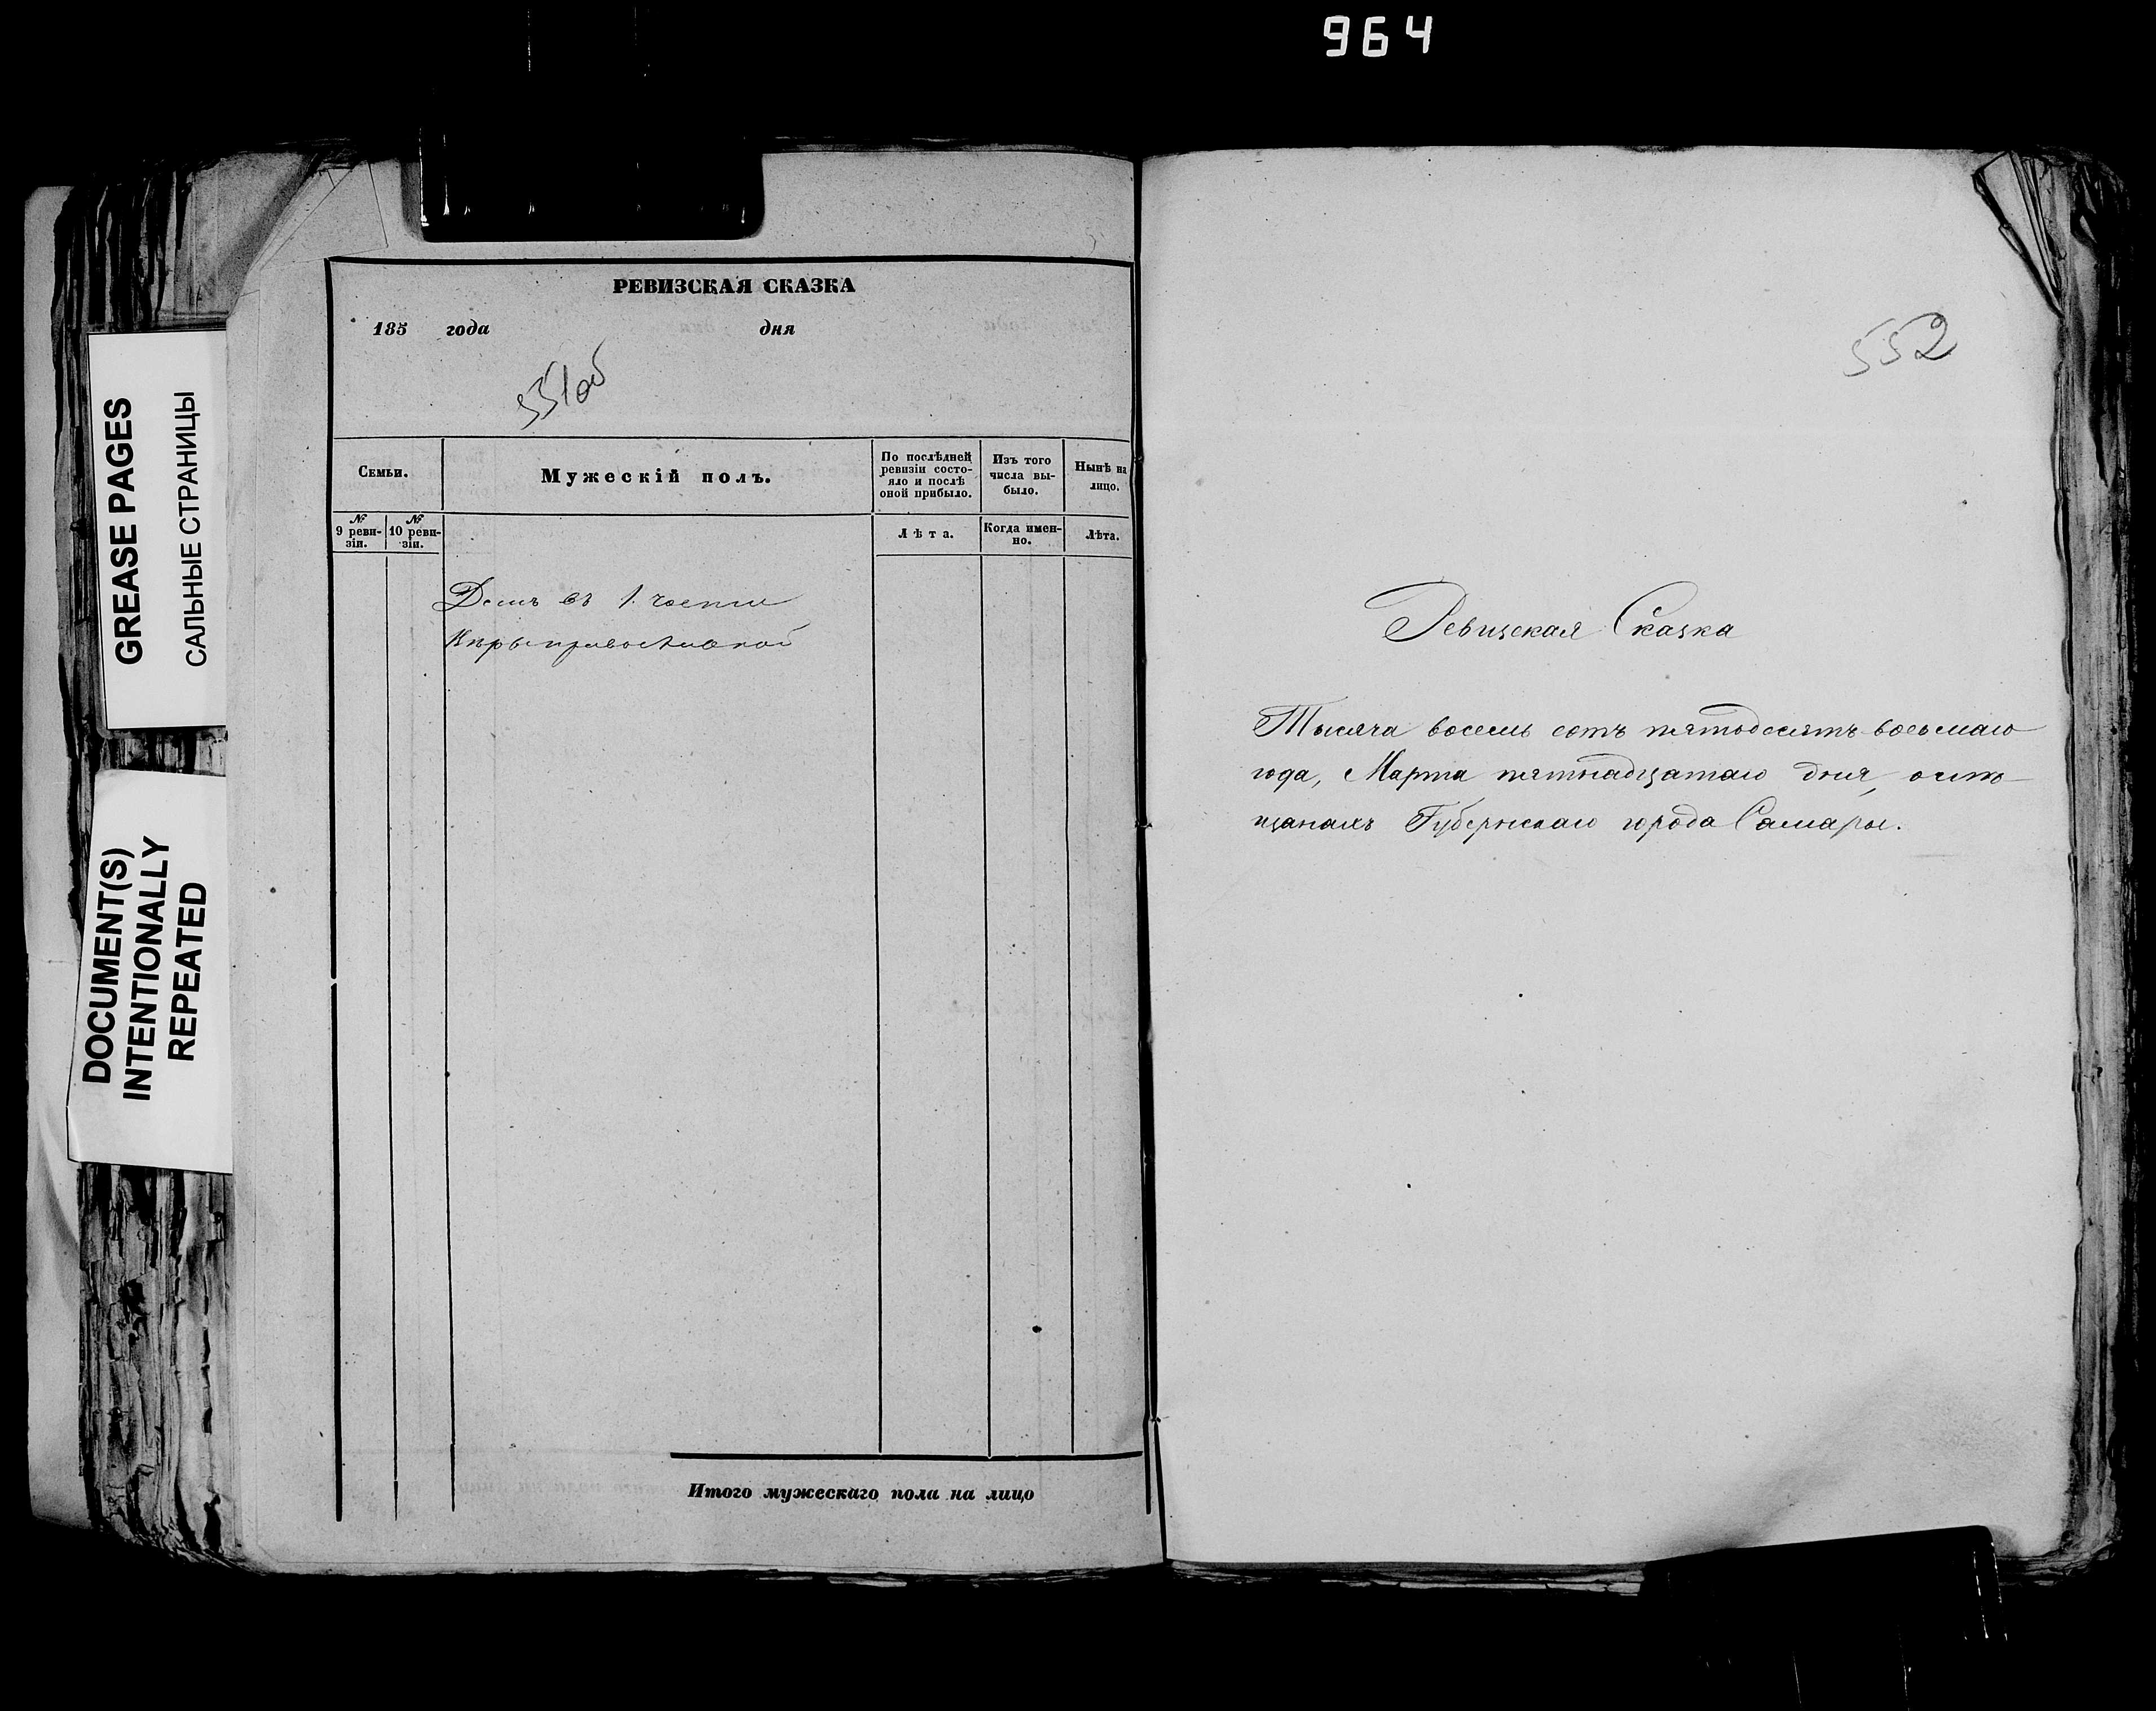 964
GREASE PAGES
САЛЬНЫЕ СТРАНИЦЫ
DOCUMENT(S)
INTENTIONALLY
REPEATED
РЕВИЗСКАЯ СКАЗКА
185 года дня
551об
Семьи.
Мужескій полъ.
По послѣдней
ревизіи состо-
яло и послѣ
оной прибыло.
Изъ того
числа вы-
было.
Нынѣ на
лицо.
№
9 реви-
зіи.
№
10 реви-
зіи.
Лѣта.
Когда имен-
но.
Лѣта.
Домъ въ 1. части
Вѣры православной
Итого мужескаго пола на лицо
552
Ревизская Сказка
Тысяча восемь сотъ пятьдесятъ восьмаго
года, Марта пятнадцатаго дня, о мѣ-
щанахъ Губернскаго города Самары.